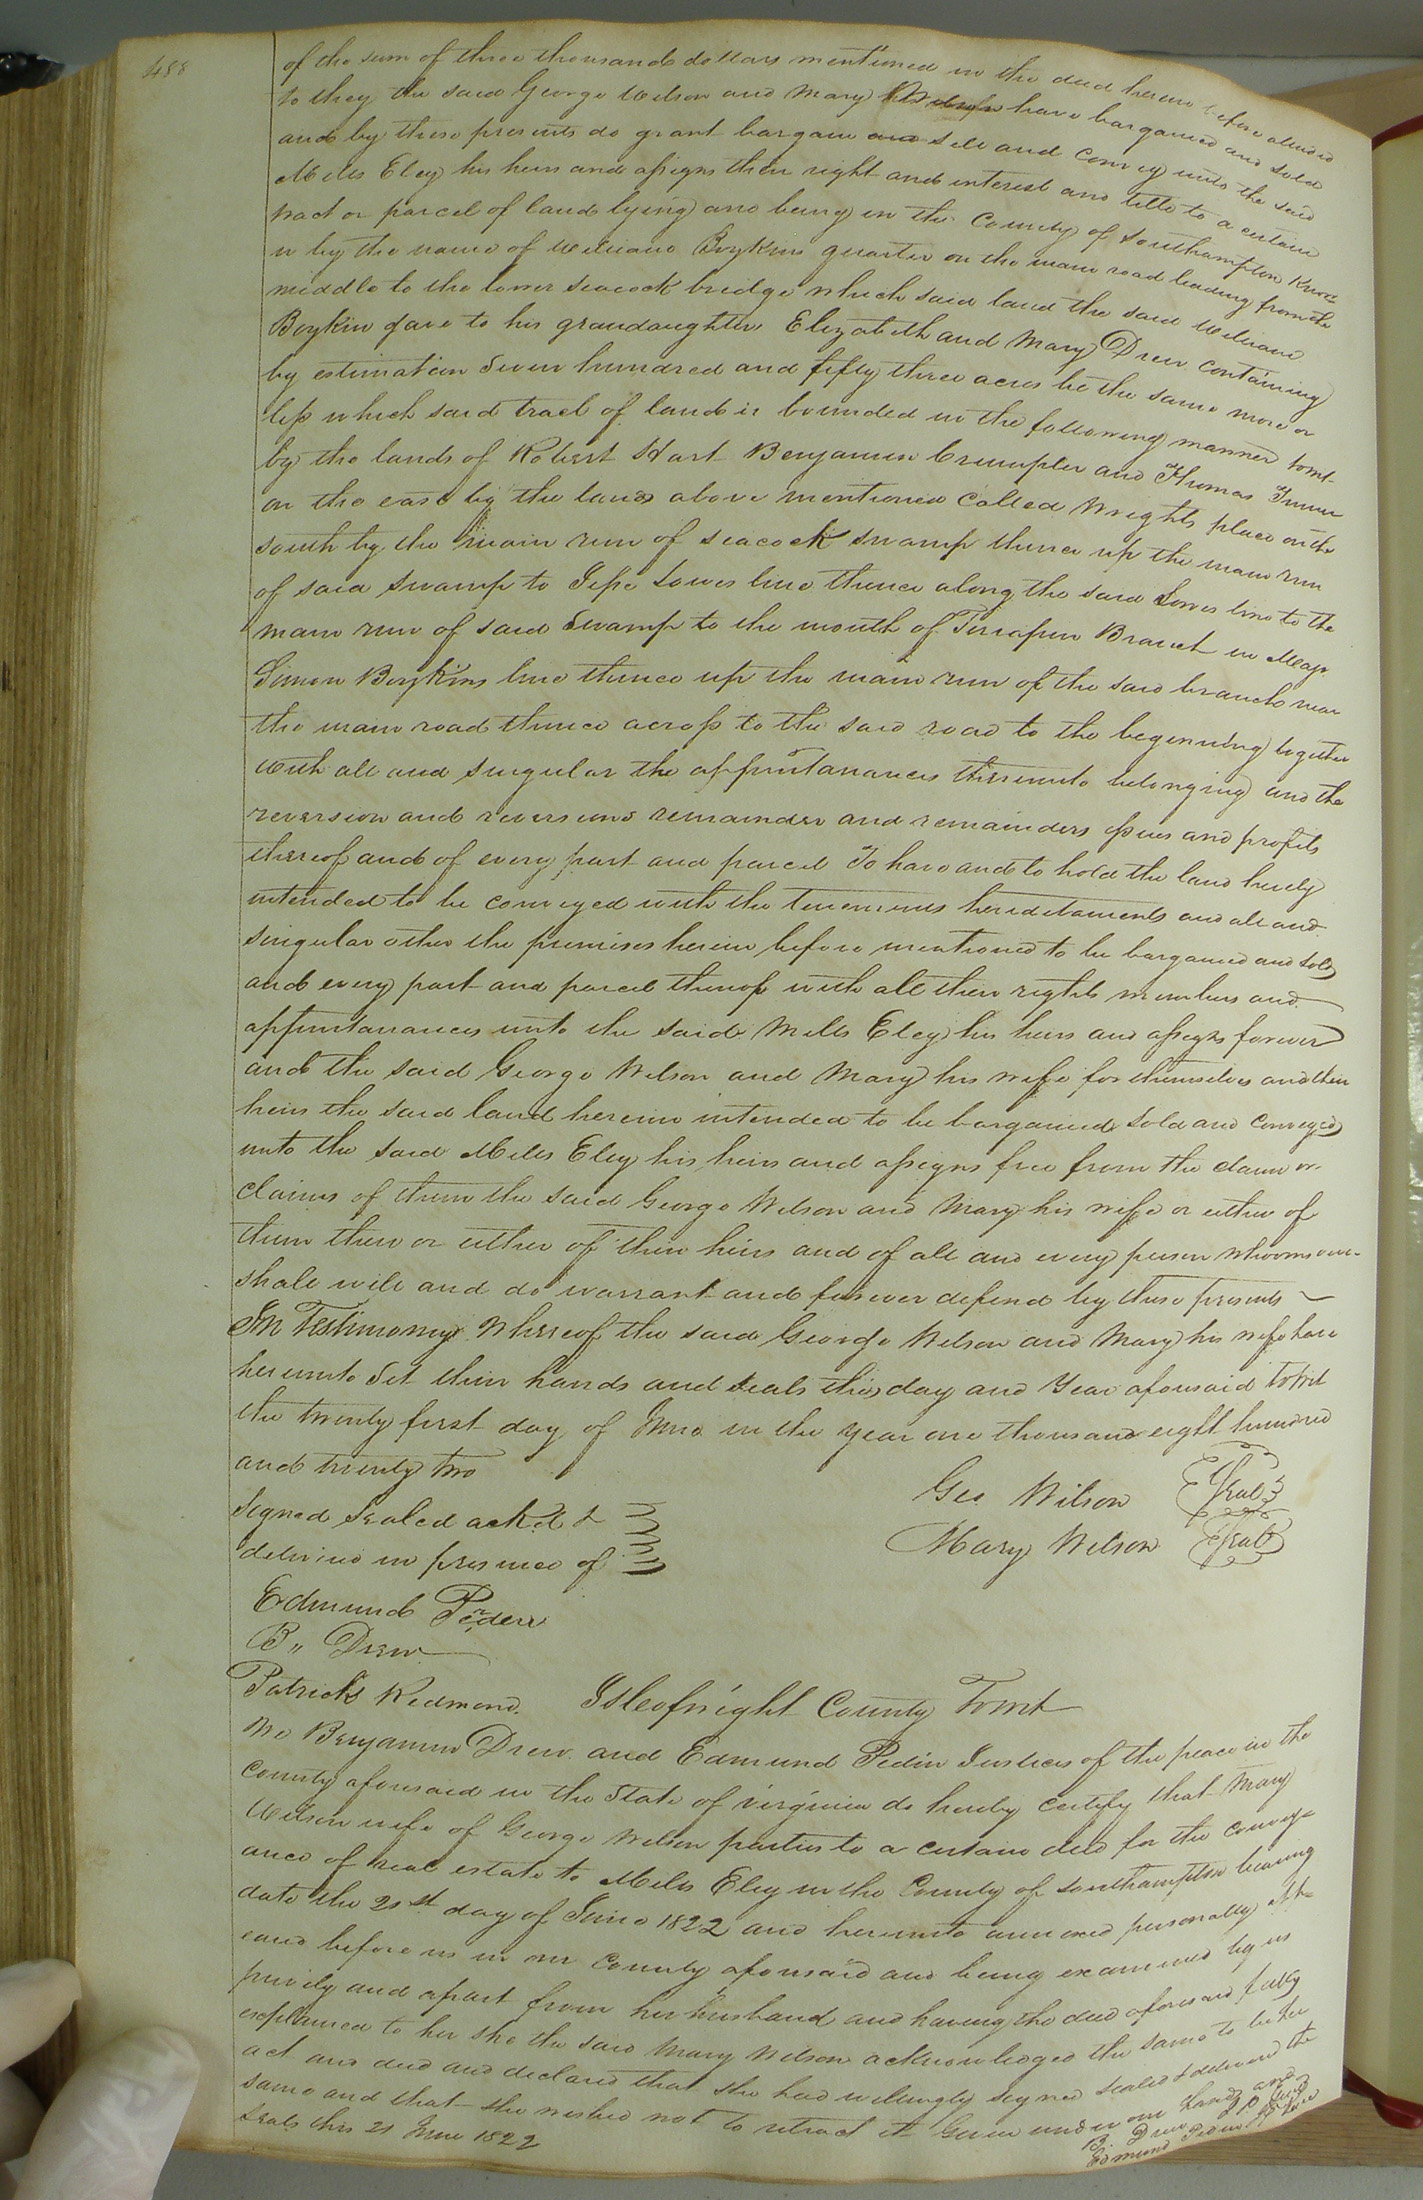 488
of the sum of three thousand dollars mentioned in the deed herein before alluded
to they the said George Wilson and Mary have bargained and sold
and by these presents do grant bargain and sell and convey unto the said
Mills Eley his heirs and assigns their right and interest and title to a certain
tract or parcel of land lying and being in the County of Southampton know
n by the name of William Boykins quarter on the main road leading from the
middle to the lower seacock bridge which said land the said William
Boykin gave to his grandaughters Elizabeth and Mary Drew containing
by estimation Seven hundred and fifty three acres be the same more or
less which said tract of land is bounded in the following manner towit
by the lands of Robert Hart Benjamin Crumpler and Thomas
on the east by the lands above mentioned Called Wrights place on the
south by the main run of seacock swamp thence up the main run
of said Swamp to Jesse Loves line thence along the said Loves line to the
main run of said Swamp to the mouth of Terrapin Branch in Majr
Simon Boykins line thence up the main run of the said branch near
the main road thence across to the said road to the beginning together
with all and singular the appurtanances thereunto belonging and the
reversion and reversions remainder and remainders issues and profits
thereof and of every part and parcel To have and to hold the land hereby
intended to be conveyed with the tenements hereditaments and all and
singular other the premises herein before mentioned to be bargained and sold
and every part and parcel thereof with all their rights members and
appurtanances unto the said Mills Eley his heirs and assigns forever
and the said George Wilson and Mary his wife for themselves and their
heirs the said land herein intended to be bargained sold and conveyed
unto the said Mills Eley his heirs and assigns free from the claim or
claims of them the said George Wilson and Mary his wife or either of
them their or either of their heirs and of all and every person whomsoever
shall will and do warrant and forever defend by these presents
In Testimony Whereof the said George Wilson and Mary his wife have
hereunto Set their hands and seals this day and Year aforesaid towit
the twenty first day of June in the year one thousand eight hundred
and twenty two
Geo Wilson Seal
Mary Wilson Seal
Signed Sealed ackd &
delivered in presence of
Edmund Peden
B,, Drew
Patrick Redmond.
Isleofwight County Towit
We Benjamin Drew and Edmund Pedin Justices of the peace in the
County aforesaid in the State of virginia do hereby certify that Mary
Wilson wife of George Wilson parties to a certain deed for the convey-
ance of real estate to Mills Eley in the County of Southampton bearing
date the 21st day of June 1822 and hereunto annexed personally app-
eared before us in our County aforesaid and being examined by us
privily and apart from her husband and having the deed aforesaid fully
explained to her she the said Mary Wilson acknowledged the same to be her
act and deed and declared that she had willingly signed sealed & delivered the
same and that she wished not to retract it Given under our hands and
Seals this 21 June 1822
B. Drew J P Seal
Edmund Pedin J P Seal